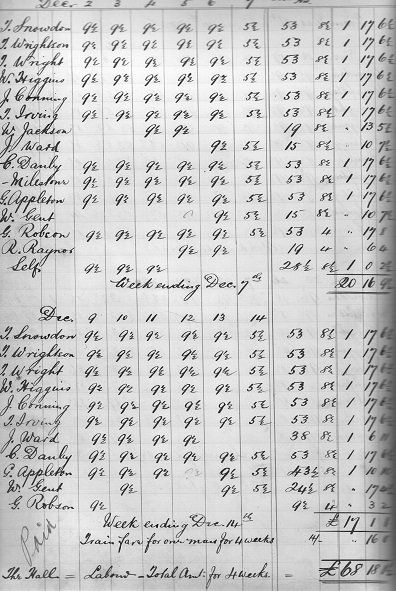 Dec. 2 3 4 5 6 7
T. Snowdon 9½ 9½ 9½ 9½ 9½ 5½ 53 8½ 1 17 6½
T. Wrightson 9½ 9½ 9½ 9½ 9½ 5½ 53 8½ 1 17 6½
T. Wright 9½ 9½ 9½ 9½ 9½ 5½ 53 8½ 1 17 6½
W. Higgins 9½ 9½ 9½ 9½ 9½ 5½ 53 8½ 1 17 6½
J. Conning 9½ 9½ 9½ 9½ 9½ 5½ 53 8½ 1 17 6½
T. Irving 9½ 9½ 9½ 9½ 9½ 5½ 53 8½ 1 17 6½
W. Jackson 9½ 9½ 19 8½ " 13 5½
J. Ward 9½ 5½ 15 8½ " 10 7½
C. Danby 9½ 9½ 9½ 9½ 9½ 5½ 53 8½ 1 17 6½
- Milestone 9½ 9½ 9½ 9½ 9½ 5½ 53 8½ 1 17 6½
G. Appleton 9½ 9½ 9½ 9½ 9½ 5½ 53 8½ 1 17 6½
W. Gent 9½ 5½ 15 8½ " 10 7½
G. Robson 9½ 9½ 9½ 9½ 9½ 5½ 53 4 " 17 8
R. Raynor 9½ 9½ 19 4 " 6 4
Self 9½ 9½ 9½ 28½ 8½ 1 0 2
Week ending Dec. 7th 20 16
Dec. 9 10 11 12 13 14
T. Snowdon 9½ 9½ 9½ 9½ 9½ 5½ 53 8½ 1 17 6½
T. Wrightson 9½ 9½ 9½ 9½ 9½ 5½ 53 8½ 1 17 6½
T. Wright 9½ 9½ 9½ 9½ 9½ 5½ 53 8½ 1 17 6½
W. Higgins 9½ 9½ 9½ 9½ 9½ 5½ 53 8½ 1 17 6½
J. Conning 9½ 9½ 9½ 9½ 9½ 5½ 53 8½ 1 17 6½
T. Irving 9½ 9½ 9½ 9½ 9½ 5½ 53 8½ 1 17 6½
J. Ward 9½ 9½ 9½ 9½ 38 8½ 1 6
C. Danby 9½ 9½ 9½ 9½ 9½ 5½ 53 8½ 1 17 6½
Appleton 9½ 9½ 9½ 9½ 5½ 43½ 8½ 1 10
W. Gent 9½ 9½ 5½ 24½ 8½ " 17
G. Robson 9½ 9½ 4 " 3 2
Week ending Dec. 14th £19 1
Train fare for one man for 4 weeks " 16
Paid
The Hall = Labour - Total Amt: for 4 weeks. = £68 18